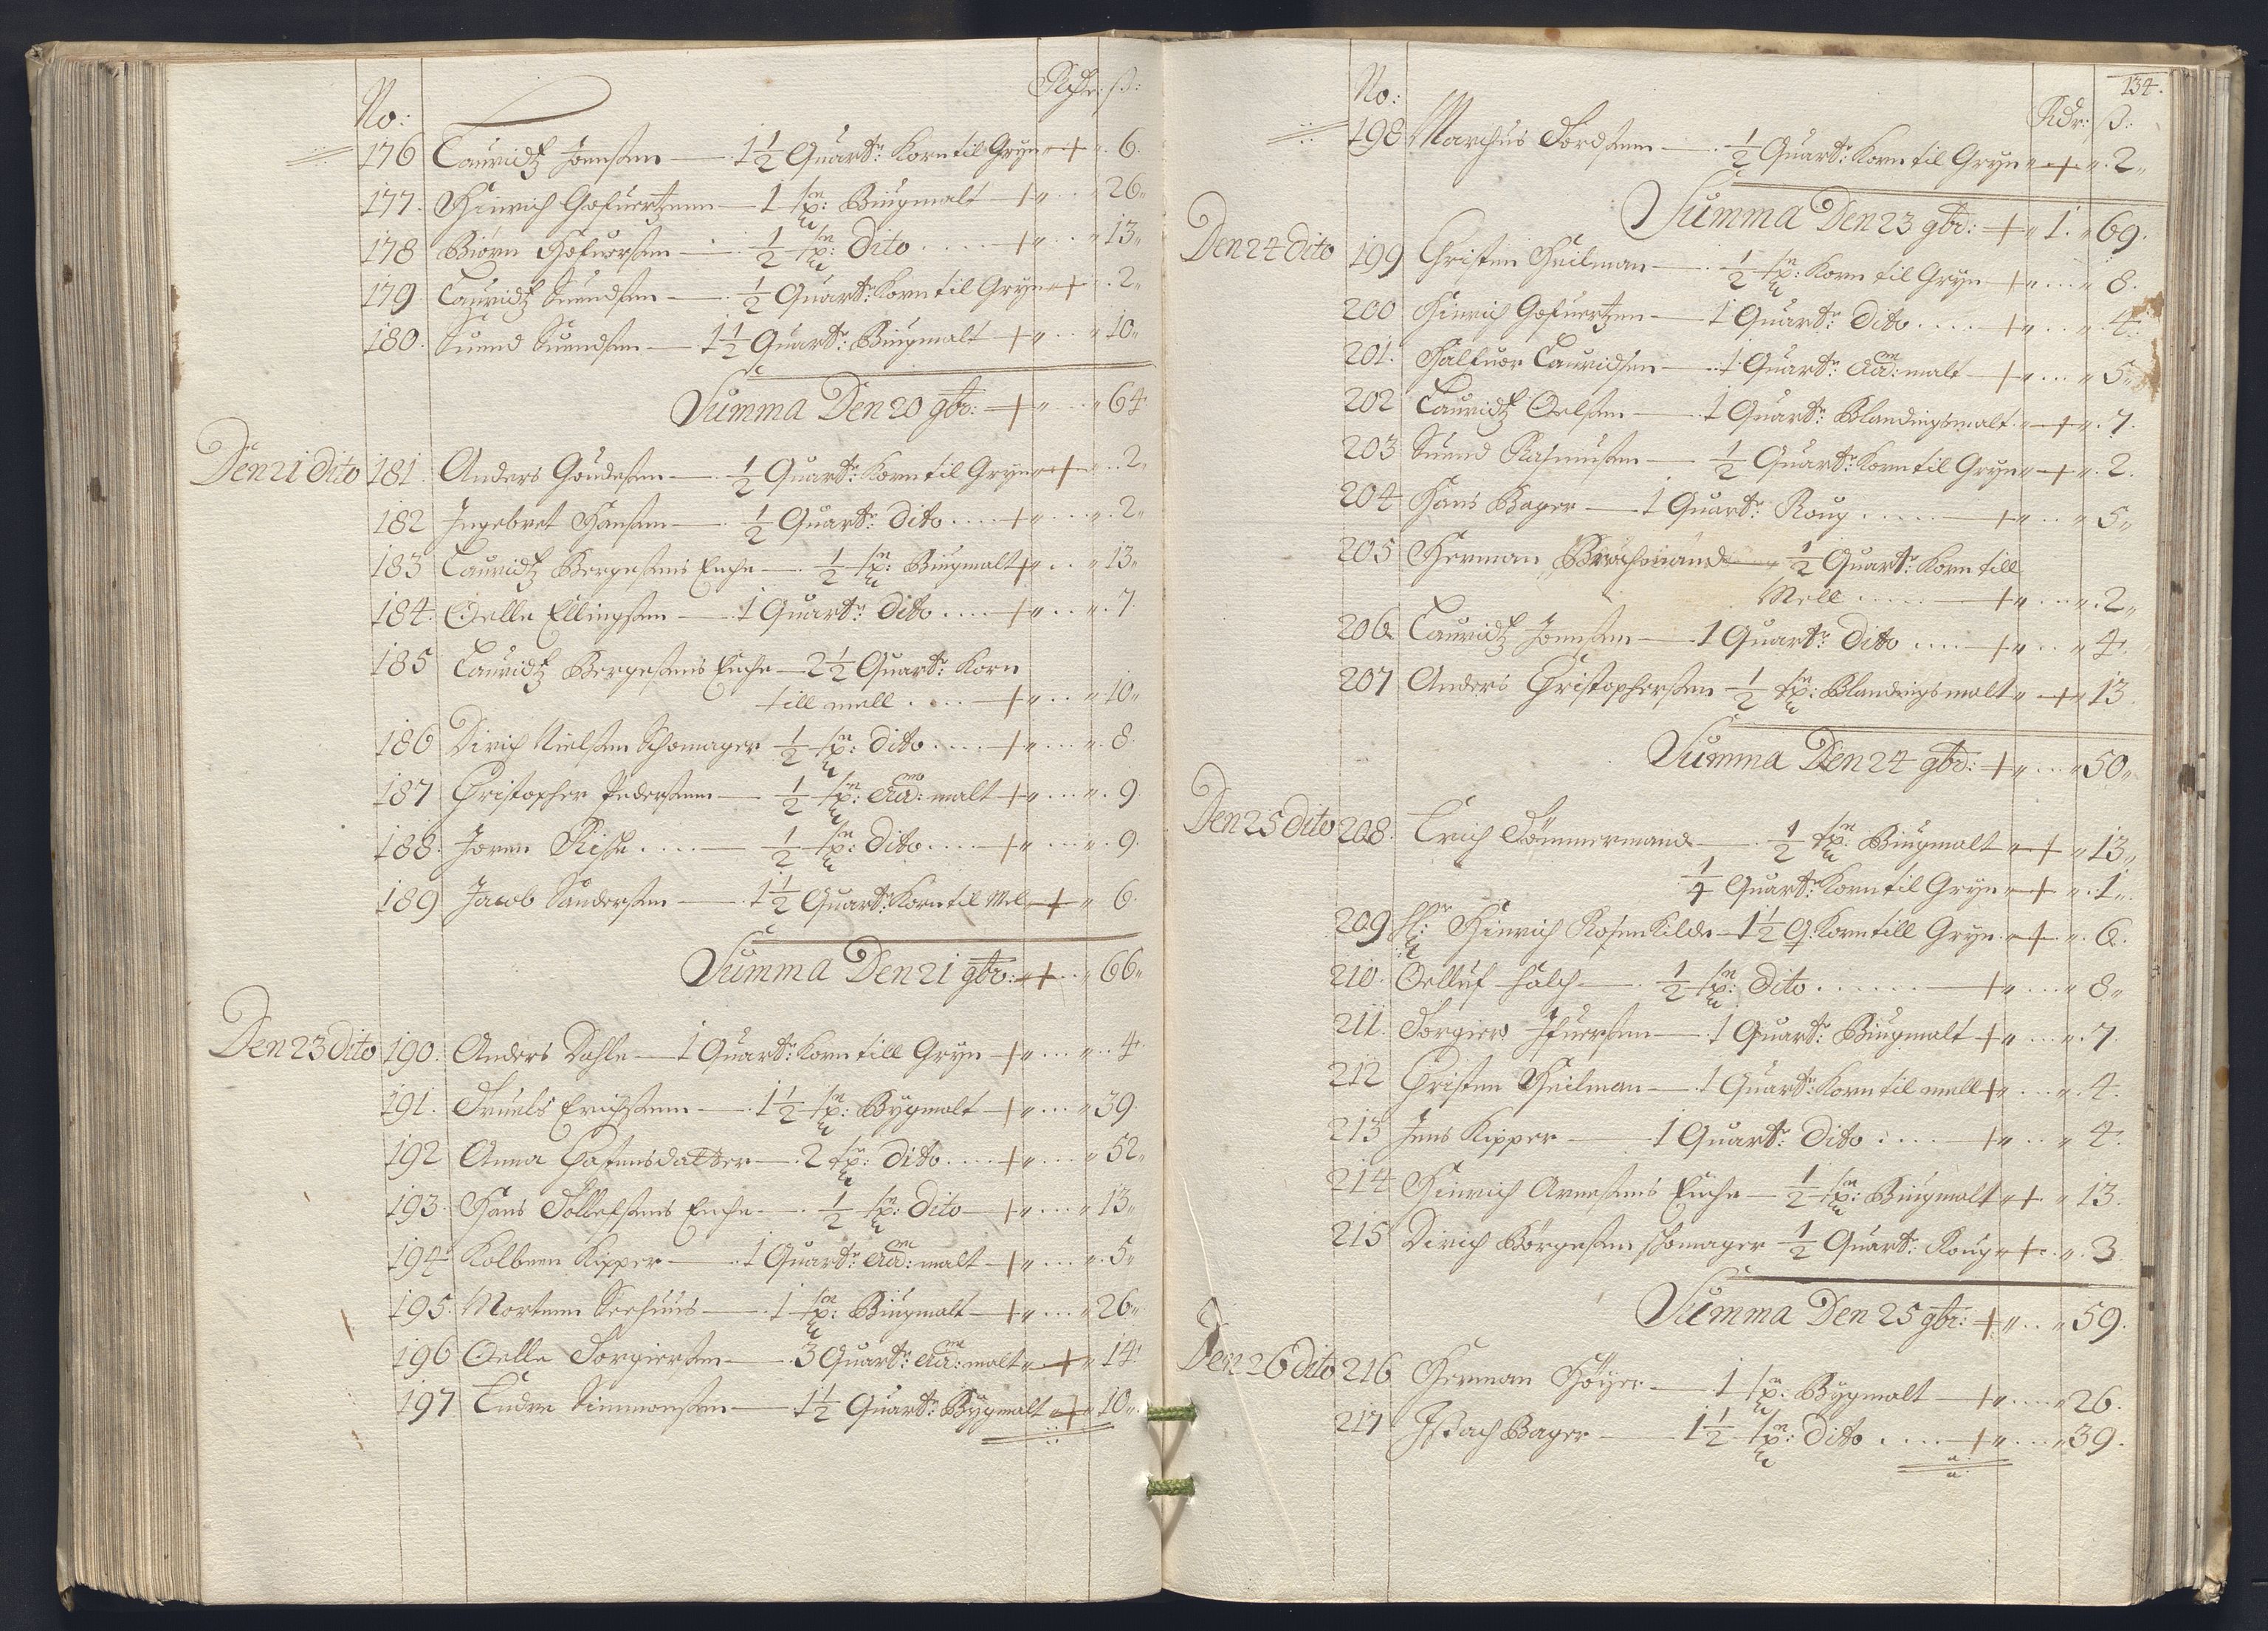 No: Rdr: ß:
176 Lauridtz Jonnsen — 1½ Quartr: Korn til Gryn " + " 6.
177. Hinrich Gofuertzenn — 1 spn: Biugmalt + " . . " 26 "
178 Biørn Hofuorsen — ½ spn: Dito . . . . + " . . " 13 "
179. Lauridtz Suendsen — ½ Quartr: Korn til Gryn " + " . 2 "
180. Suend Suendsen — 1½ Quartr: Biugmalt + " . . " 10 "
Summa Den 20 9br: + " . . . " 64.
Den 21 Dito 181. Anders Goudesen — ½ Quartr: Korn til Gryn " + " . . 2 "
182 Ingebret Hansen — ½ Quartr: Dito . . . . + " . . . " . 2 "
183 Lauridtz Bergesens Enche — ½ spn: Biugmalt + " . . " 13 "
184. Oelle Ellingsen — 1 Quartr: Dito . . . . + " . . " . 7
185 Lauridtz Bergesens Enche — 2½ Quartr: Korn
till mell . . . . + " . . " 10 "
186 Dirich Nielsen Schomager ½ spn: Dito . . . . + " . . . " . 8.
187 Christopher Pedersenn — ½ spn: Ad: malt + " . . . " . 9.
188. Joren Risse . . . . — ½ spn: Dito . . . . + " . . . " . 9.
189 Jacob Sandersen — 1½ Quartr: Korn til Mel + " 6.
Summa Den 21 9br: " + . . " 66 "
Den 23 Dito 190. Anders Dahle — 1 Quartr: Korn till Gryn + " . . . " . . 4.
191. Truels Erichsenn — 1½ spn: Bygmalt + " . . . " 39.
192 Anna Hostensdatter — 2 spn: Dito . . . . + " . . . " 52 "
193. Hans Tollefsens Enche — ½ spn: Dito — + " . . . " 13 "
194 Kolbenn Kipper — 1 Quartr: Ad: malt + " . . . " . 5 "
195. Mortenn Seehuus — 1 spn: Biugmalt + " . . . " 26 "
196 Oelle Torgiersen — 3 Quartr: Ad: malt " + " 14.
197 Endre Simmonsen — 1½ Quartr: Bygmalt " + " 10 "
134.
No: Rdr: ß:
198 Marchus Tordsenn — ½ Quartr: Korn til Gryn " + " . 2 "
Summa Den 23 9br: + " 1. " 69.
Den 24 Dito 199 Christen Heilman — ½ spn: Korn til Gryn + " . . . " 8.
200 Hinrich Gofuertzen — 1 Quartr: Dito . . . . + " . . " . 4.
201. Halfuor Lauridsen — 1 Quartr: Ad: malt + " . . . " 5 "
202 Lauridtz Oelsen — 1 Quartr: Blandingsmalt " + " . 7.
203 Suend Rasmusen — ½ Quartr: Korn til Gryn " + " . 2.
204 Hans Bager — 1 Quartr: Roug . . . . + " . . " 5 "
205 Herman — ½ Quartr: Korn till
Mell . . . . + " . . . " . 2 "
206 Lauridtz Jonnsen — 1 Quartr: Dito . . . . + " . . " 4.
207 Anders Christophersen — ½ spn: Blandingsmalt " + " 13.
Summa Den 24 9br: + " . . . " 50 "
Den 25 Dito 208. Erich Tömmermand — ½ spn: Biugmalt " + " 13 "
¼ Quartr: Korn til Gryn " + " . 1 "
209 Sr: Hinrich Rosenkilde — 1½ Q: Korn till Gryn " + " . 6.
210. Oelluf Falch — ½ spn: Dito . . . . + " . . . " 8 "
211. Torgier Ifuersen — 1 Quartr: Biugmalt + " . . . " . 7.
212 Christen Heilman — 1 Quartr: Korn til mell + " . . . " . 4.
213 Jens Kipper — 1 Quartr: Dito . . . . + " . . " 4.
214 Hinrich Arnesens Enche — ½ spn: Biugmalt " + " 13.
215 Dirich Börgesen Schomager ½ Quartr: Roug " + . . " . 3.
Summa Den 25 9br: + " . . " 59.
Den 26 Dito 216 Herman Höyer — 1 spn: Bygmalt — + " . . . . " 26.
217 Issach Bager — 1½ spn: Dito . . . . + " . . . " 39.